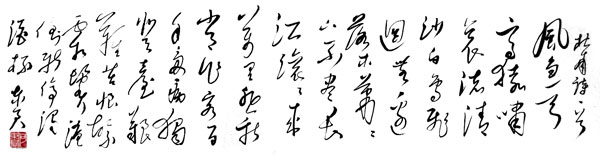 杜甫詩一首
風急天
高猿嘯
哀渚清
沙白鳥飛
迴無邊
落木蕭〻
下不盡長
江滚〻来
萬里悲秋
常作客百
年多病獨
登臺艱
難苦恨繁
霜鬢潦
倒新停濁
酒杯